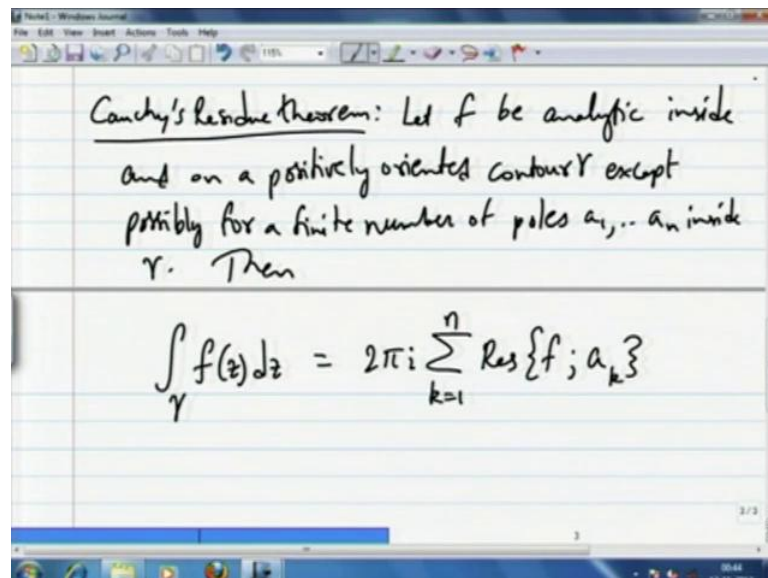 Note1 - Windows Journal
File Edit View Insert Actions Tools Help
115%
Cauchy's Residue theorem: Let f be analytic inside
and on a positively oriented contour γ except
possibly for a finite number of poles a₁,.. aₙ inside
γ. Then
∫_γ f(z) dz = 2πi ∑_{k=1}^{n} Res{f; a_k}
3/3
3
00:44